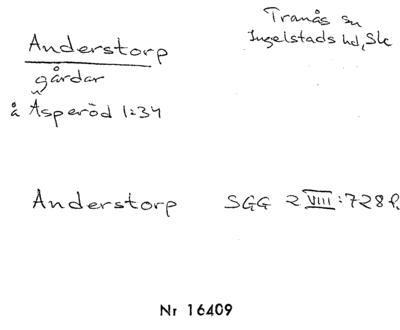 Tranås sn
Ingelstads hd, Sk
Anderstorp
gårdar
å Äsperöd 1:34
Anderstorp SGG 2 VIII:728 f.
Nr 16409